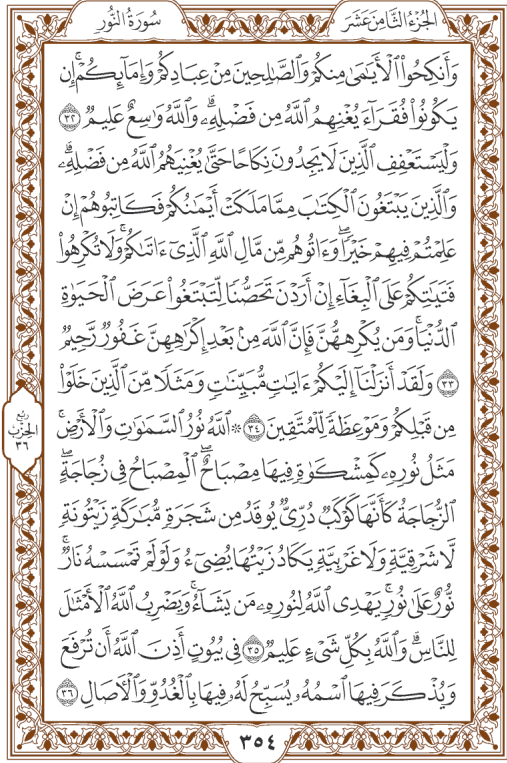 سُورَةُ النُّورِ
الجُزْءُ الثَّامِنَ عَشَرَ
وَأَنكِحُوا۟ ٱلْأَيَـٰمَىٰ مِنكُمْ وَٱلصَّـٰلِحِينَ مِنْ عِبَادِكُمْ وَإِمَآئِكُمْ ۚ إِن
يَكُونُوا۟ فُقَرَآءَ يُغْنِهِمُ ٱللَّهُ مِن فَضْلِهِۦ ۗ وَٱللَّهُ وَٰسِعٌ عَلِيمٌ ٣٢
وَلْيَسْتَعْفِفِ ٱلَّذِينَ لَا يَجِدُونَ نِكَاحًا حَتَّىٰ يُغْنِيَهُمُ ٱللَّهُ مِن فَضْلِهِۦ ۗ
وَٱلَّذِينَ يَبْتَغُونَ ٱلْكِتَـٰبَ مِمَّا مَلَكَتْ أَيْمَـٰنُكُمْ فَكَاتِبُوهُمْ إِنْ
عَلِمْتُمْ فِيهِمْ خَيْرًا ۖ وَءَاتُوهُم مِّن مَّالِ ٱللَّهِ ٱلَّذِىٓ ءَاتَىٰكُمْ ۚ وَلَا تُكْرِهُوا۟
فَتَيَـٰتِكُمْ عَلَى ٱلْبِغَآءِ إِنْ أَرَدْنَ تَحَصُّنًا لِّتَبْتَغُوا۟ عَرَضَ ٱلْحَيَوٰةِ
ٱلدُّنْيَا ۚ وَمَن يُكْرِههُّنَّ فَإِنَّ ٱللَّهَ مِنۢ بَعْدِ إِكْرَٰهِهِنَّ غَفُورٌ رَّحِيمٌ
٣٣ وَلَقَدْ أَنزَلْنَآ إِلَيْكُمْ ءَايَـٰتٍ مُّبَيِّنَـٰتٍ وَمَثَلًا مِّنَ ٱلَّذِينَ خَلَوْا۟
مِن قَبْلِكُمْ وَمَوْعِظَةً لِّلْمُتَّقِينَ ٣٤ ۞ ٱللَّهُ نُورُ ٱلسَّمَـٰوَٰتِ وَٱلْأَرْضِ ۚ
رُبْع
الحِزْب
٣٦
مَثَلُ نُورِهِۦ كَمِشْكَوٰةٍ فِيهَا مِصْبَاحٌ ۖ ٱلْمِصْبَاحُ فِى زُجَاجَةٍ ۖ
ٱلزُّجَاجَةُ كَأَنَّهَا كَوْكَبٌ دُرِّىٌّ يُوقَدُ مِن شَجَرَةٍ مُّبَـٰرَكَةٍ زَيْتُونَةٍ
لَّا شَرْقِيَّةٍ وَلَا غَرْبِيَّةٍ يَكَادُ زَيْتُهَا يُضِىٓءُ وَلَوْ لَمْ تَمْسَسْهُ نَارٌ ۚ
نُّورٌ عَلَىٰ نُورٍ ۗ يَهْدِى ٱللَّهُ لِنُورِهِۦ مَن يَشَآءُ ۚ وَيَضْرِبُ ٱللَّهُ ٱلْأَمْثَـٰلَ
لِلنَّاسِ ۗ وَٱللَّهُ بِكُلِّ شَىْءٍ عَلِيمٌ ٣٥ فِى بُيُوتٍ أَذِنَ ٱللَّهُ أَن تُرْفَعَ
وَيُذْكَرَ فِيهَا ٱسْمُهُۥ يُسَبِّحُ لَهُۥ فِيهَا بِٱلْغُدُوِّ وَٱلْـَٔاصَالِ ٣٦
٣٥٤